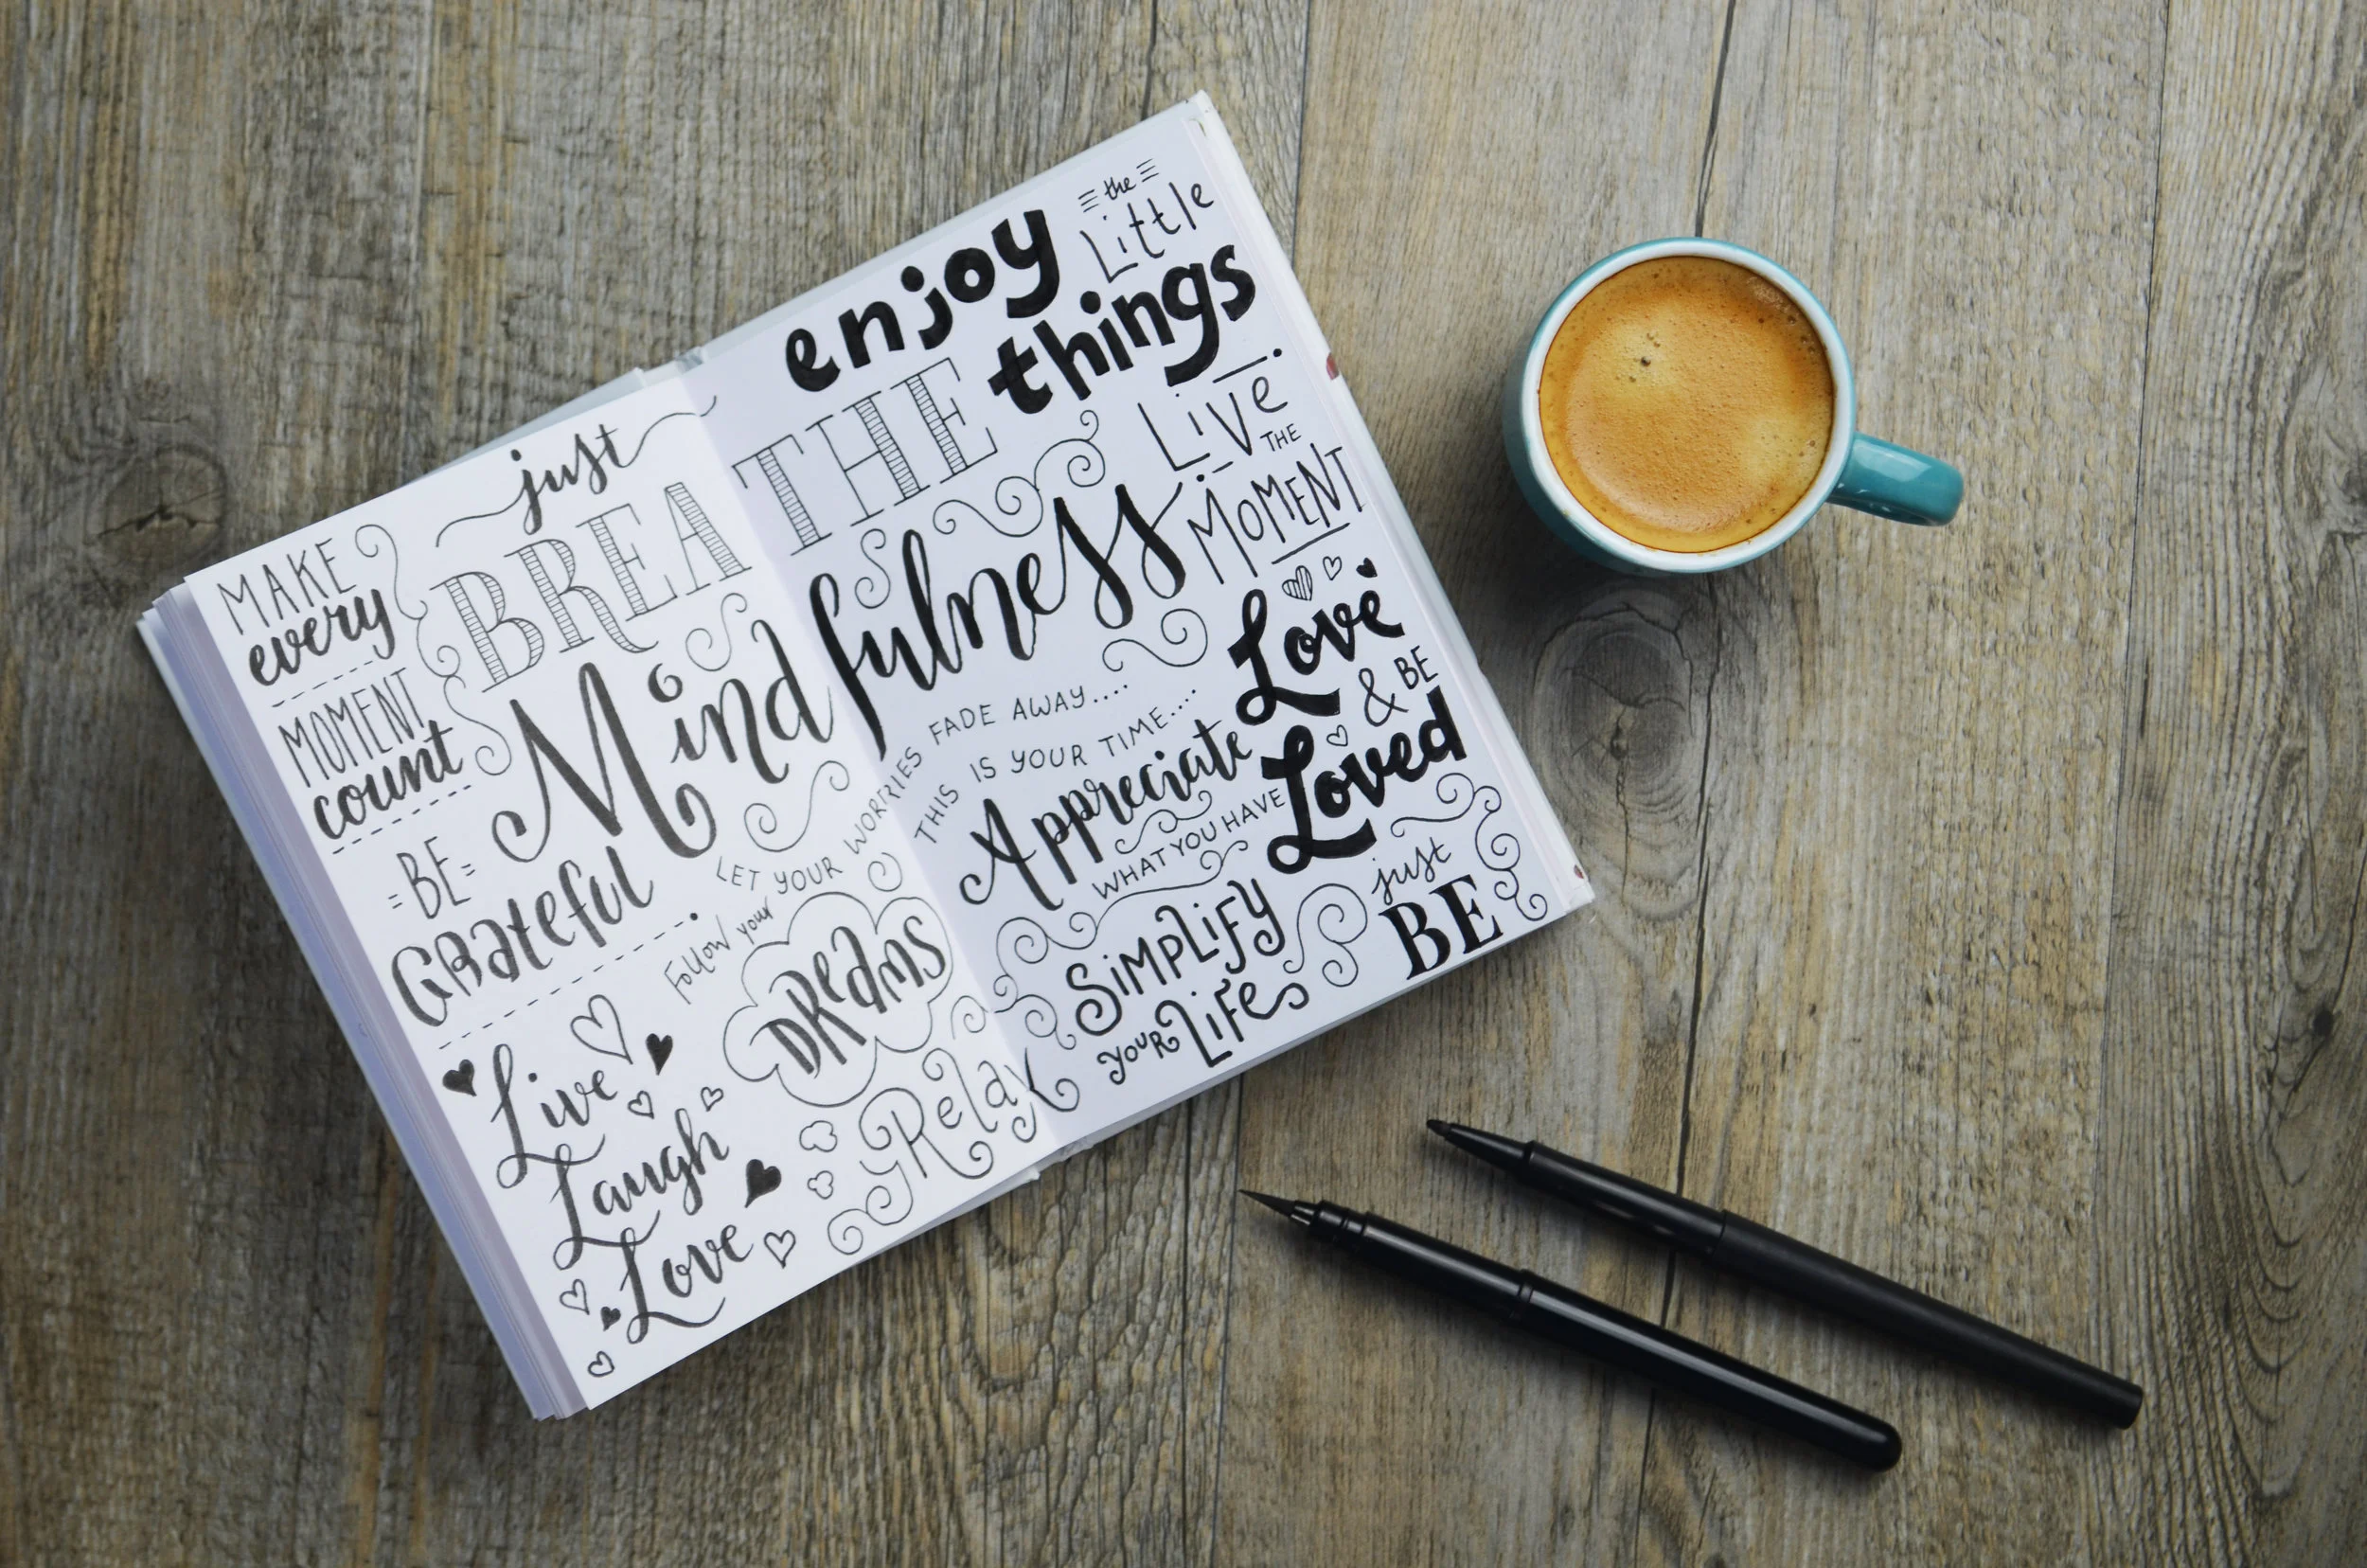 enjoy
the
Little
things
just
BREATHE
LIVE
THE
MOMENT
MAKE
every
MOMENT
count
Mindfulness
Love
& BE
Loved
BE
GRateful
LET YOUR WORRIES FADE AWAY....
THIS IS YOUR TIME....
Appreciate
WHAT YOU HAVE
Follow your
DReamS
SiMPLiFY
YOUR LiFe
just
BE
Live
Laugh
Love
Relax